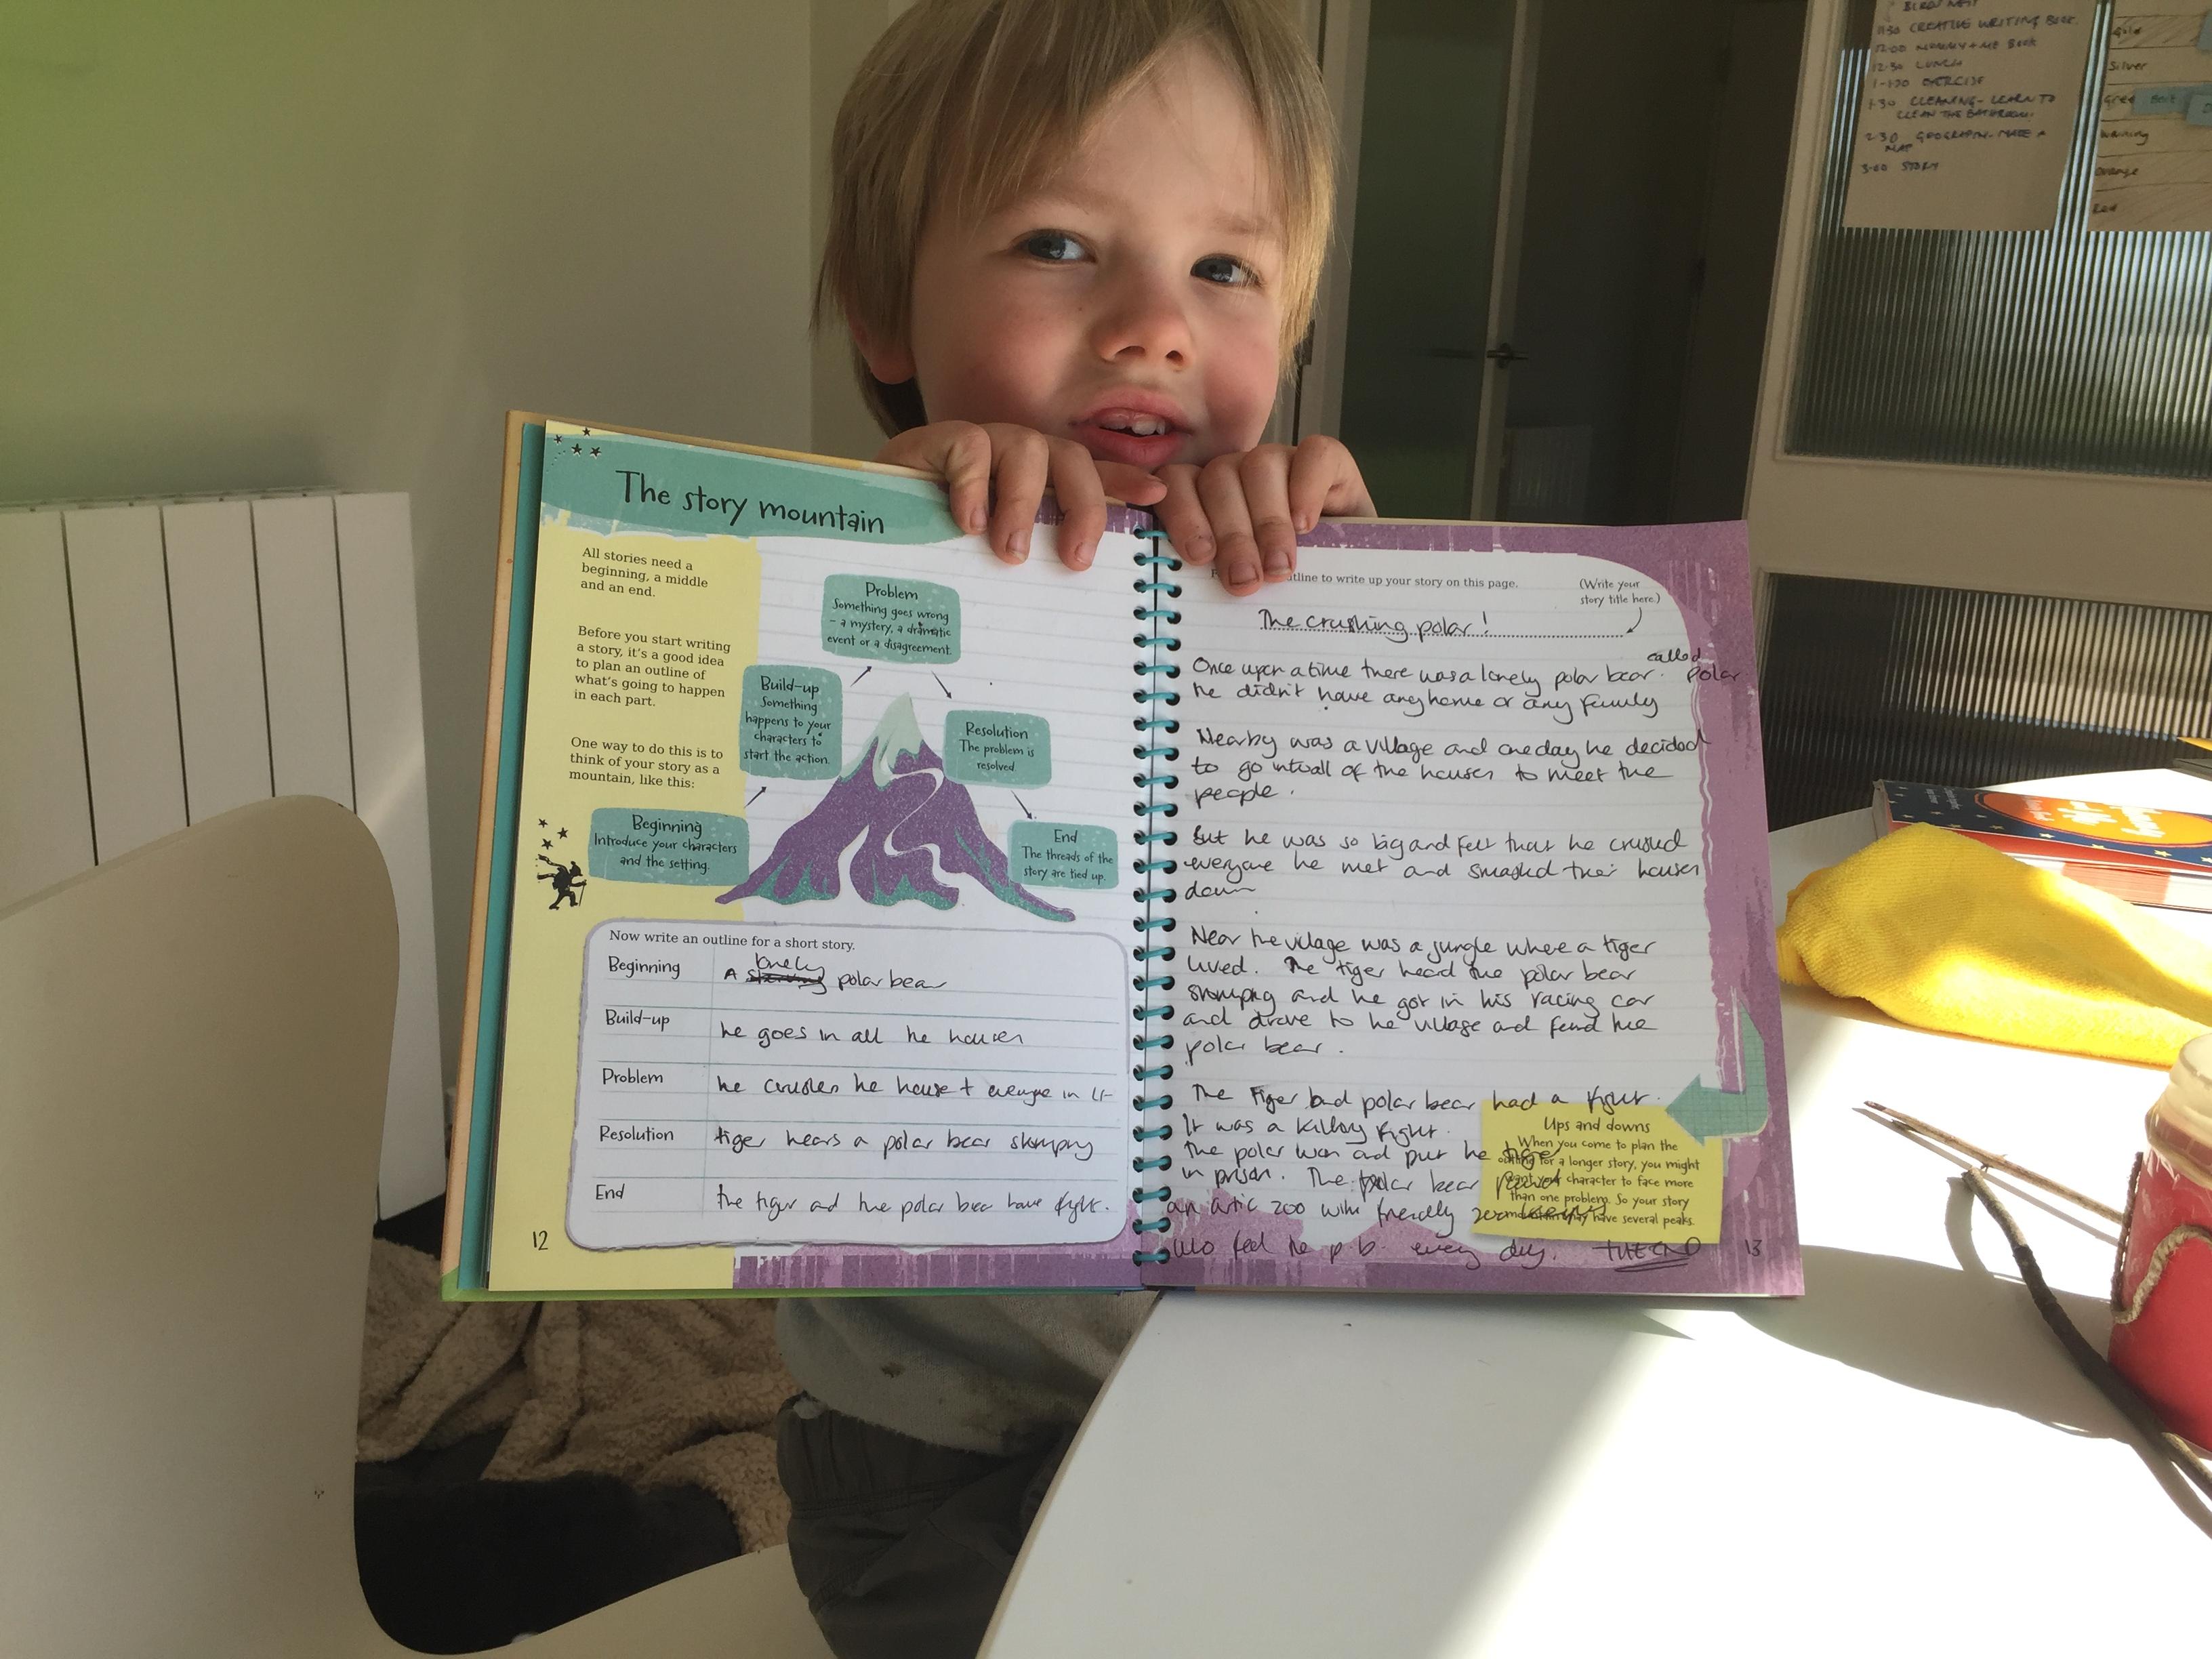 The story mountain
All stories need a
beginning, a middle
and an end.
Before you start writing
a story, it's a good idea
to plan an outline of
what's going to happen
in each part.
One way to do this is to
think of your story as a
mountain, like this:
Beginning
Introduce your characters
and the setting.
Build-up
Something
happens to your
characters to
start the action.
Problem
Something goes wrong
– a mystery, a dramatic
event or a disagreement.
Resolution
The problem is
resolved
End
The threads of the
story are tied up.
Now write an outline for a short story.
Beginning
A lonely polar bear
Build-up
he goes in all he houses
Problem
he crushes he house + everyone in it
Resolution
tiger hears a polar bear stomping
End
the tiger and the polar bear have fight.
12
to write up your story on this page.
(Write your
story title here.)
The crushing polar!
called
Once upon a time there was a lonely polar bear. polar
he didn't have any home or any family
Nearby was a village and one day he decided
to go into all of the houses to meet the
people.
But he was so big and felt that he crushed
everyone he met and smashed their houses
down
Near the village was a jungle where a tiger
lived. The tiger heard the polar bear
stomping and he got in his racing car
and drove to he village and found the
polar bear.
The tiger and polar bear had a fight.
It was a killing fight.
the polar won and put he tiger
in prison. The polar bear
an artic zoo with friendly
who feed he p.b. every day. THE END
Ups and downs
When you come to plan the
outline for a longer story, you might
want your character to face more
than one problem. So your story
may have several peaks.
13
11:30 CREATIVE WRITING BOOK
12:00 MUMMY + ME BOOK
12-30 LUNCH
1-1:30 EXERCISE
1:30 CLEANING - LEARN TO
CLEAN THE BATHROOM
2:30 GEOGRAPHY - MAKE A
MAP
3-00 STORY
Gold
Silver
Green
Warning
Orange
Red